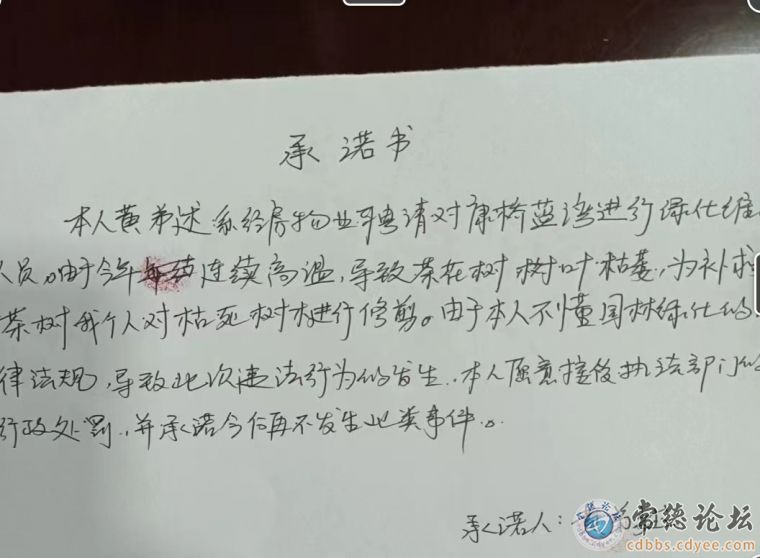 承诺书
本人黄弟述系经房物业聘请对康桥蓝湾进行绿化维
人员。由于今年连续高温,导致茶花树树叶枯萎,为补救
茶树我个人对枯死树木进行修剪。由于本人不懂园林绿化的
律法规,导致此次违法行为的发生,本人愿意接受执法部门的
行政处罚,并承诺今后再不发生此类事件。
承诺人:
常德论坛
cdbbs.cdyee.com